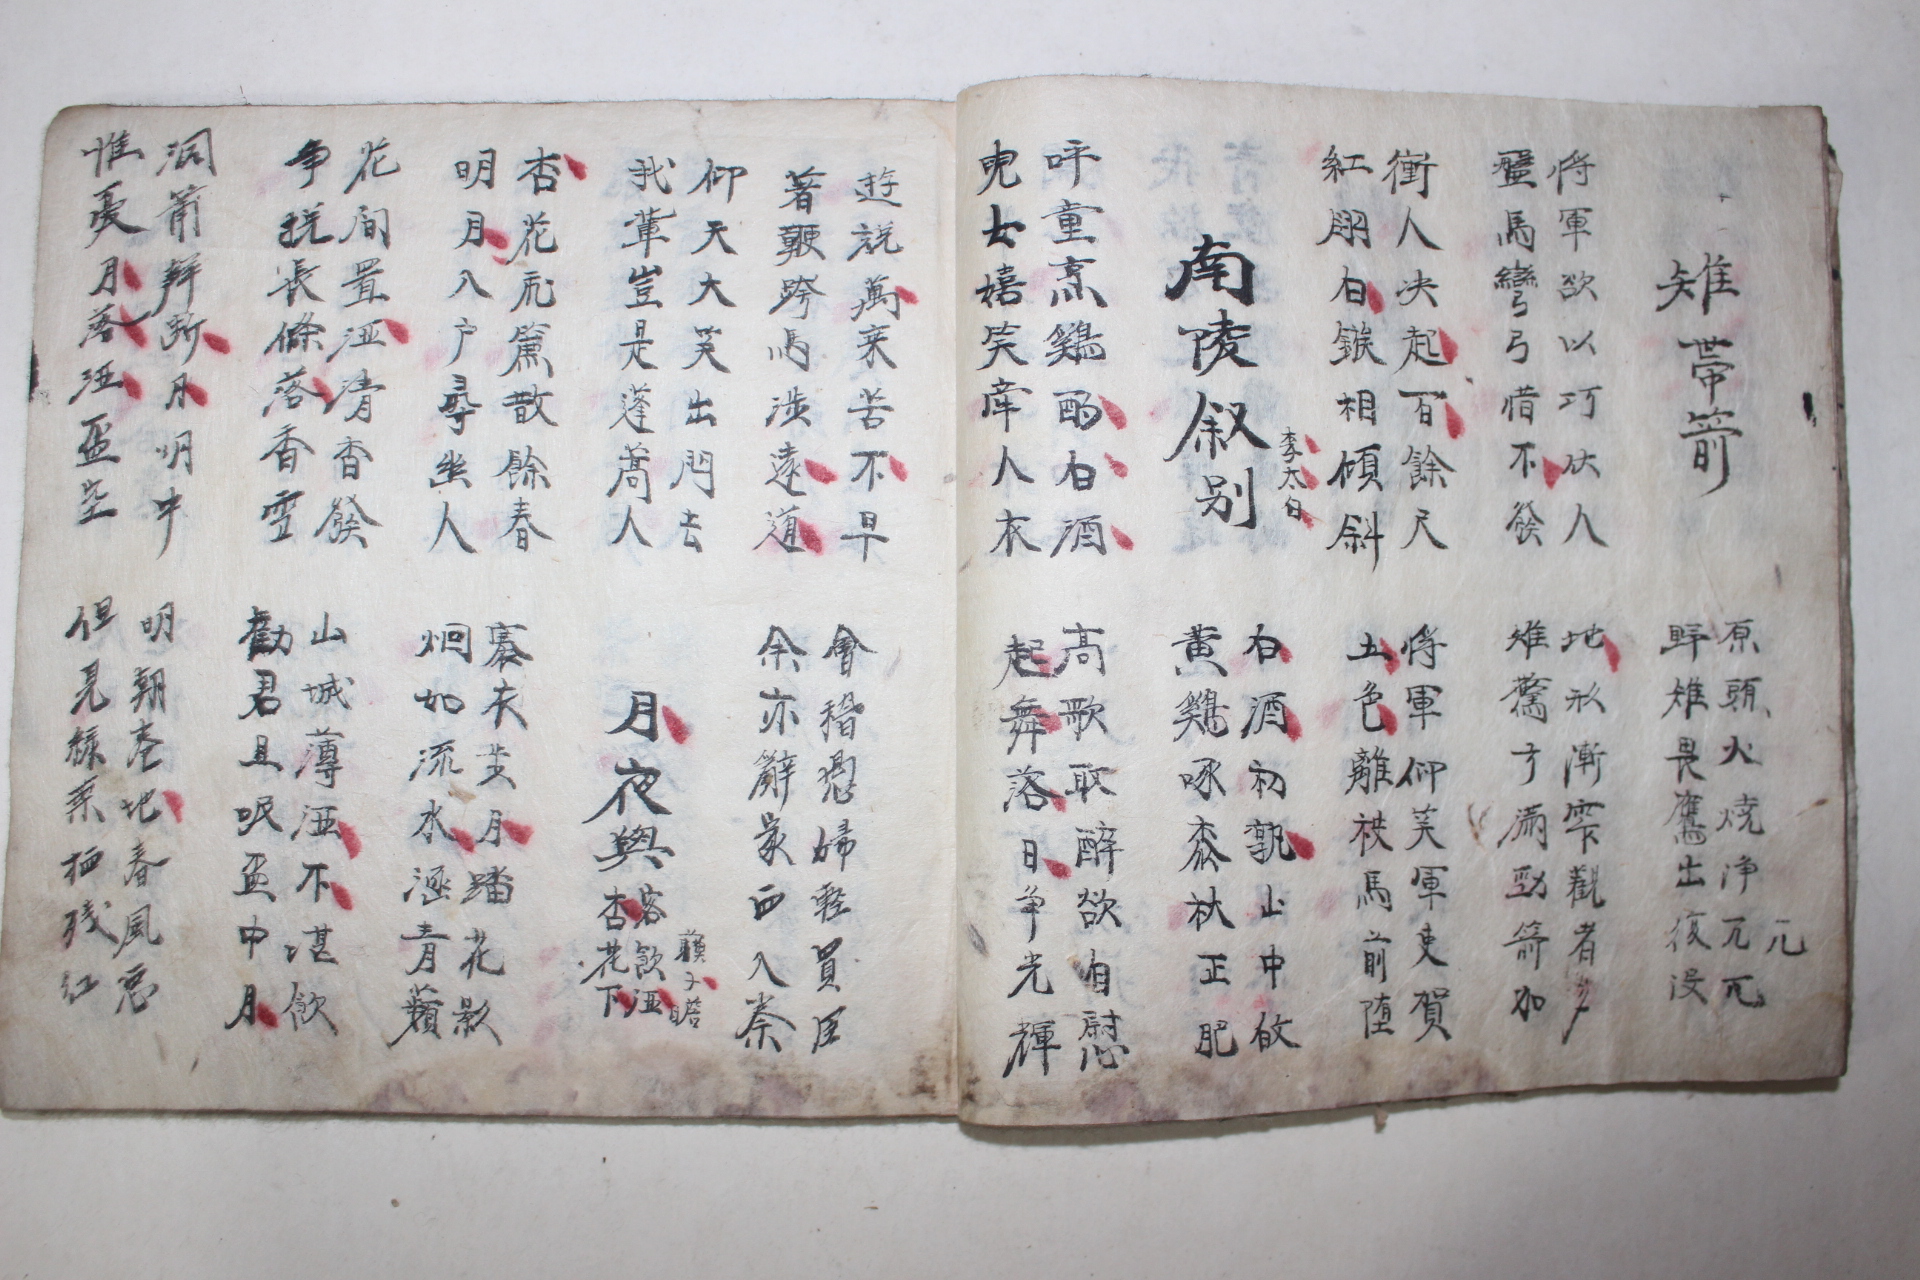 雉帶箭
原頭火燒淨兀兀
兀
野雉畏鷹出復沒
將軍欲以巧伏人
盤馬彎弓惜不發
地形漸窄觀者多
雉驚弓滿勁箭加
衝人决起百餘尺
紅翎白鏃相傾斜
將軍仰笑軍吏賀
五色離披馬前墮
南陵叙別
李太白
白酒初熟山中故
黃鷄啄黍秋正肥
呼重烹鷄酌白酒
兒女嬉笑牽人衣
高歌取醉欲自慰
起舞落日爭光輝
遊說萬乘苦不早
著鞭跨馬涉遠道
會稽愚婦輕買臣
余亦辭家西入秦
仰天大笑出門去
我輩豈是蓬蒿人
月夜與客飲酒杏花下
蘓子瞻
杏花飛簾散餘春
明月入戶尋幽人
褰衣步月踏花影
炯如流水涵青蘋
花間置酒清香發
爭挽長條落香雪
山城薄酒不堪飲
勸君且吸盃中月
洞簫聲斷月明中
惟憂月落酒盃空
明朝卷地春風惡
但見綠葉栖殘紅